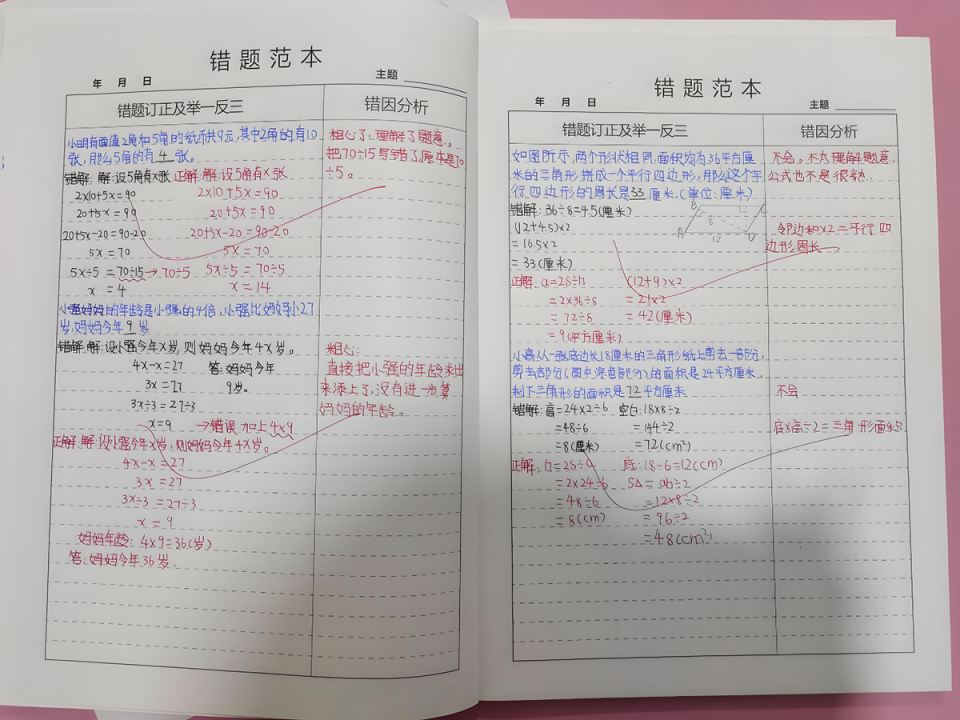 错题范本
年 月 日
主题
错题订正及举一反三
错因分析
小明有面值2角和5角的纸币共9元,其中2角的有10
张,那么5角的有4张。
错解:解:设5角有x张
2×10+5x=90
20+5x=90
20+5x-20=90-20
5x=70
5x÷5=70÷15→70÷5
x=4
正解:解:设5角有x张
2×10+5x=90
20+5x=90
20+5x-20=90-20
5x=70
5x÷5=70÷5
x=14
粗心了,理解了题意。
把70÷15写错了,原本是70
÷5。
小强妈妈的年龄是小强的4倍,小强比妈妈小27
岁,妈妈今年9岁
错解:解:设小强今年x岁,则妈妈今年4x岁。
4x-x=27
3x=27
3x÷3=27÷3
x=9
答:妈妈今年
9岁。
→错误 加上4×9
正解:解:设小强今年x岁,则妈妈今年4x岁。
4x-x=27
3x=27
3x÷3=27÷3
x=9
妈妈年龄:4×9=36(岁)
答:妈妈今年36岁.
粗心:
直接把小强的年龄求出
来添上了,没有进一步算
妈妈的年龄。
错题范本
年 月 日
主题
错题订正及举一反三
错因分析
如图所示,两个形状相同,面积均为36平方厘
米的三角形拼成一个平行四边形,那么这个平
行四边形的周长是33厘米.(单位:厘米)
错解:36÷8=4.5(厘米)
(12+4.5)×2
=16.5×2
=33(厘米)
B
C
8
A
12
D
正解:a=2S÷h
=2×36÷8
=72÷8
=9(平方厘米)
(12+9)×2
=21×2
=42(厘米)
不会,不太理解题意,
公式也不是很熟.
邻边和×2=平行四
边形周长
从一张底边长18厘米的三角形纸上剪去一部分,
剪去部分(图中深色部分)的面积是24平方厘米,
剩下三角形的面积是72平方厘米
错解:高=24×2÷6
=48÷6
=8(厘米)
空白:18×8÷2
=144÷2
=72(cm²)
正解:h=2S÷a
=2×24÷6
=48÷6
=8(cm)
底:18-6=12(cm)
S△=ab÷2
=12×8÷2
=96÷2
=48(cm²)
不会
底×高÷2=三角形面积